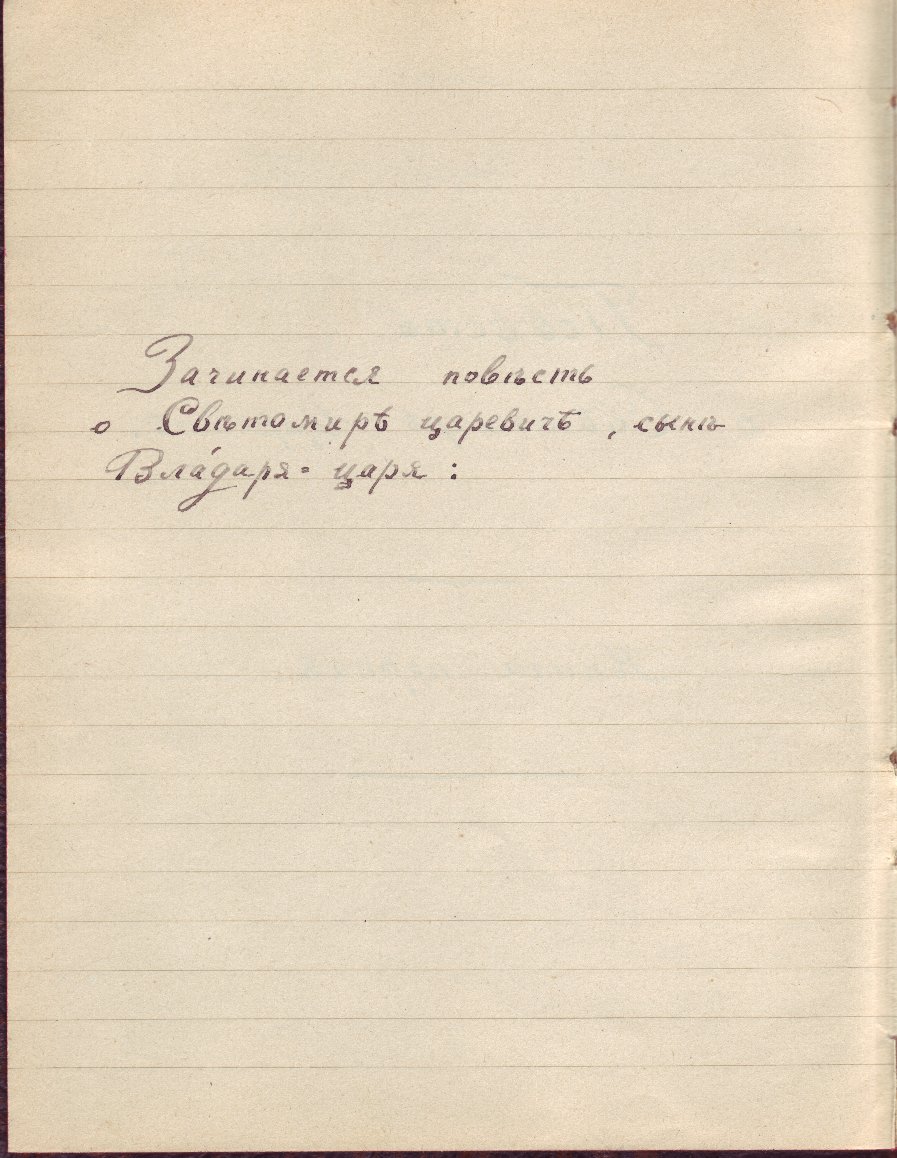 Зачинается повѣсть
о Свѣтомирѣ царевичѣ, сынѣ
Вла́даря-царя: